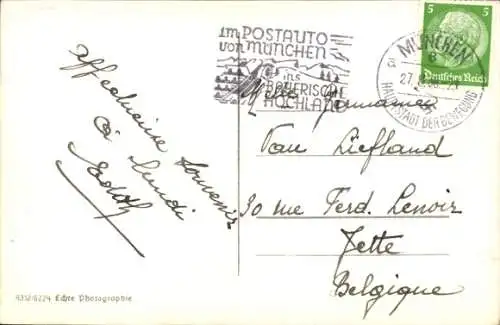 im POSTAUTO
von MÜNCHEN
ins
BAYERISCHE
HOCHLAND
MÜNCHEN
27.
HAUPTSTADT DER BEWEGUNG
5 5
Deutsches Reich
Affectueux Souvenir
à Lundi
Edith
Melle
Van Liefland
30 rue Ferd. Lenoir
Jette
Belgique
4312/6224 Echte Photographie